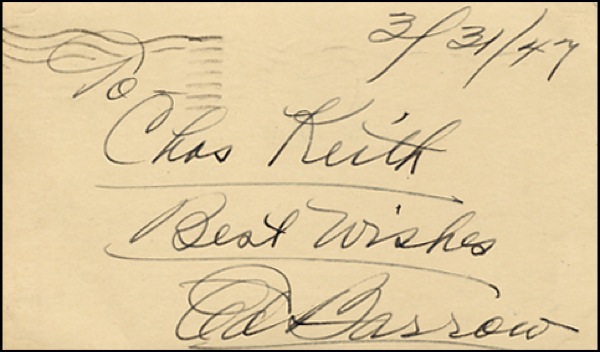 3/31/47
To
Chas Keith
Best Wishes
Ed Barrow